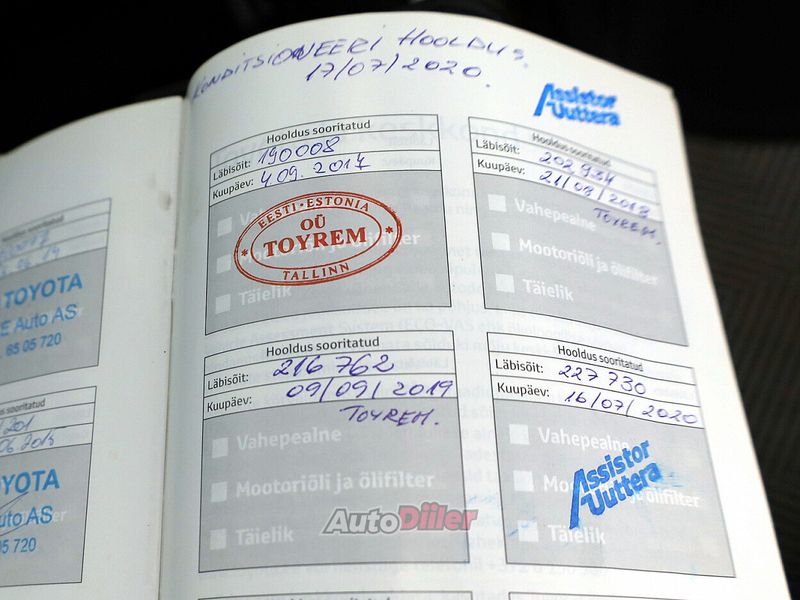 KONDITSIONEERI HOOLDUS.
17/07/2020.
Assistor
Uuttera
Hooldus sooritatud
Läbisõit: 190008
Kuupäev: 4.09.2017
Vahepealne
Mootoriõli ja õlifilter
Täielik
EESTI · ESTONIA
OÜ
* TOYREM *
TALLINN
Hooldus sooritatud
Läbisõit: 202 934
Kuupäev: 21/08/2018
TOYREM.
Vahepealne
Mootoriõli ja õlifilter
Täielik
Hooldus sooritatud
Läbisõit: 216 762
Kuupäev: 09/09/2019
TOYREM.
Vahepealne
Mootoriõli ja õlifilter
Täielik
Hooldus sooritatud
Läbisõit: 227 730
Kuupäev: 16/07/2020
Vahepealne
Mootoriõli ja õlifilter
Täielik
Assistor
Uuttera
sooritatud
TOYOTA
E Auto AS
65 05 720
sooritatud
201
06.2015
YOTA
uto AS
05 720
AutoDiiler